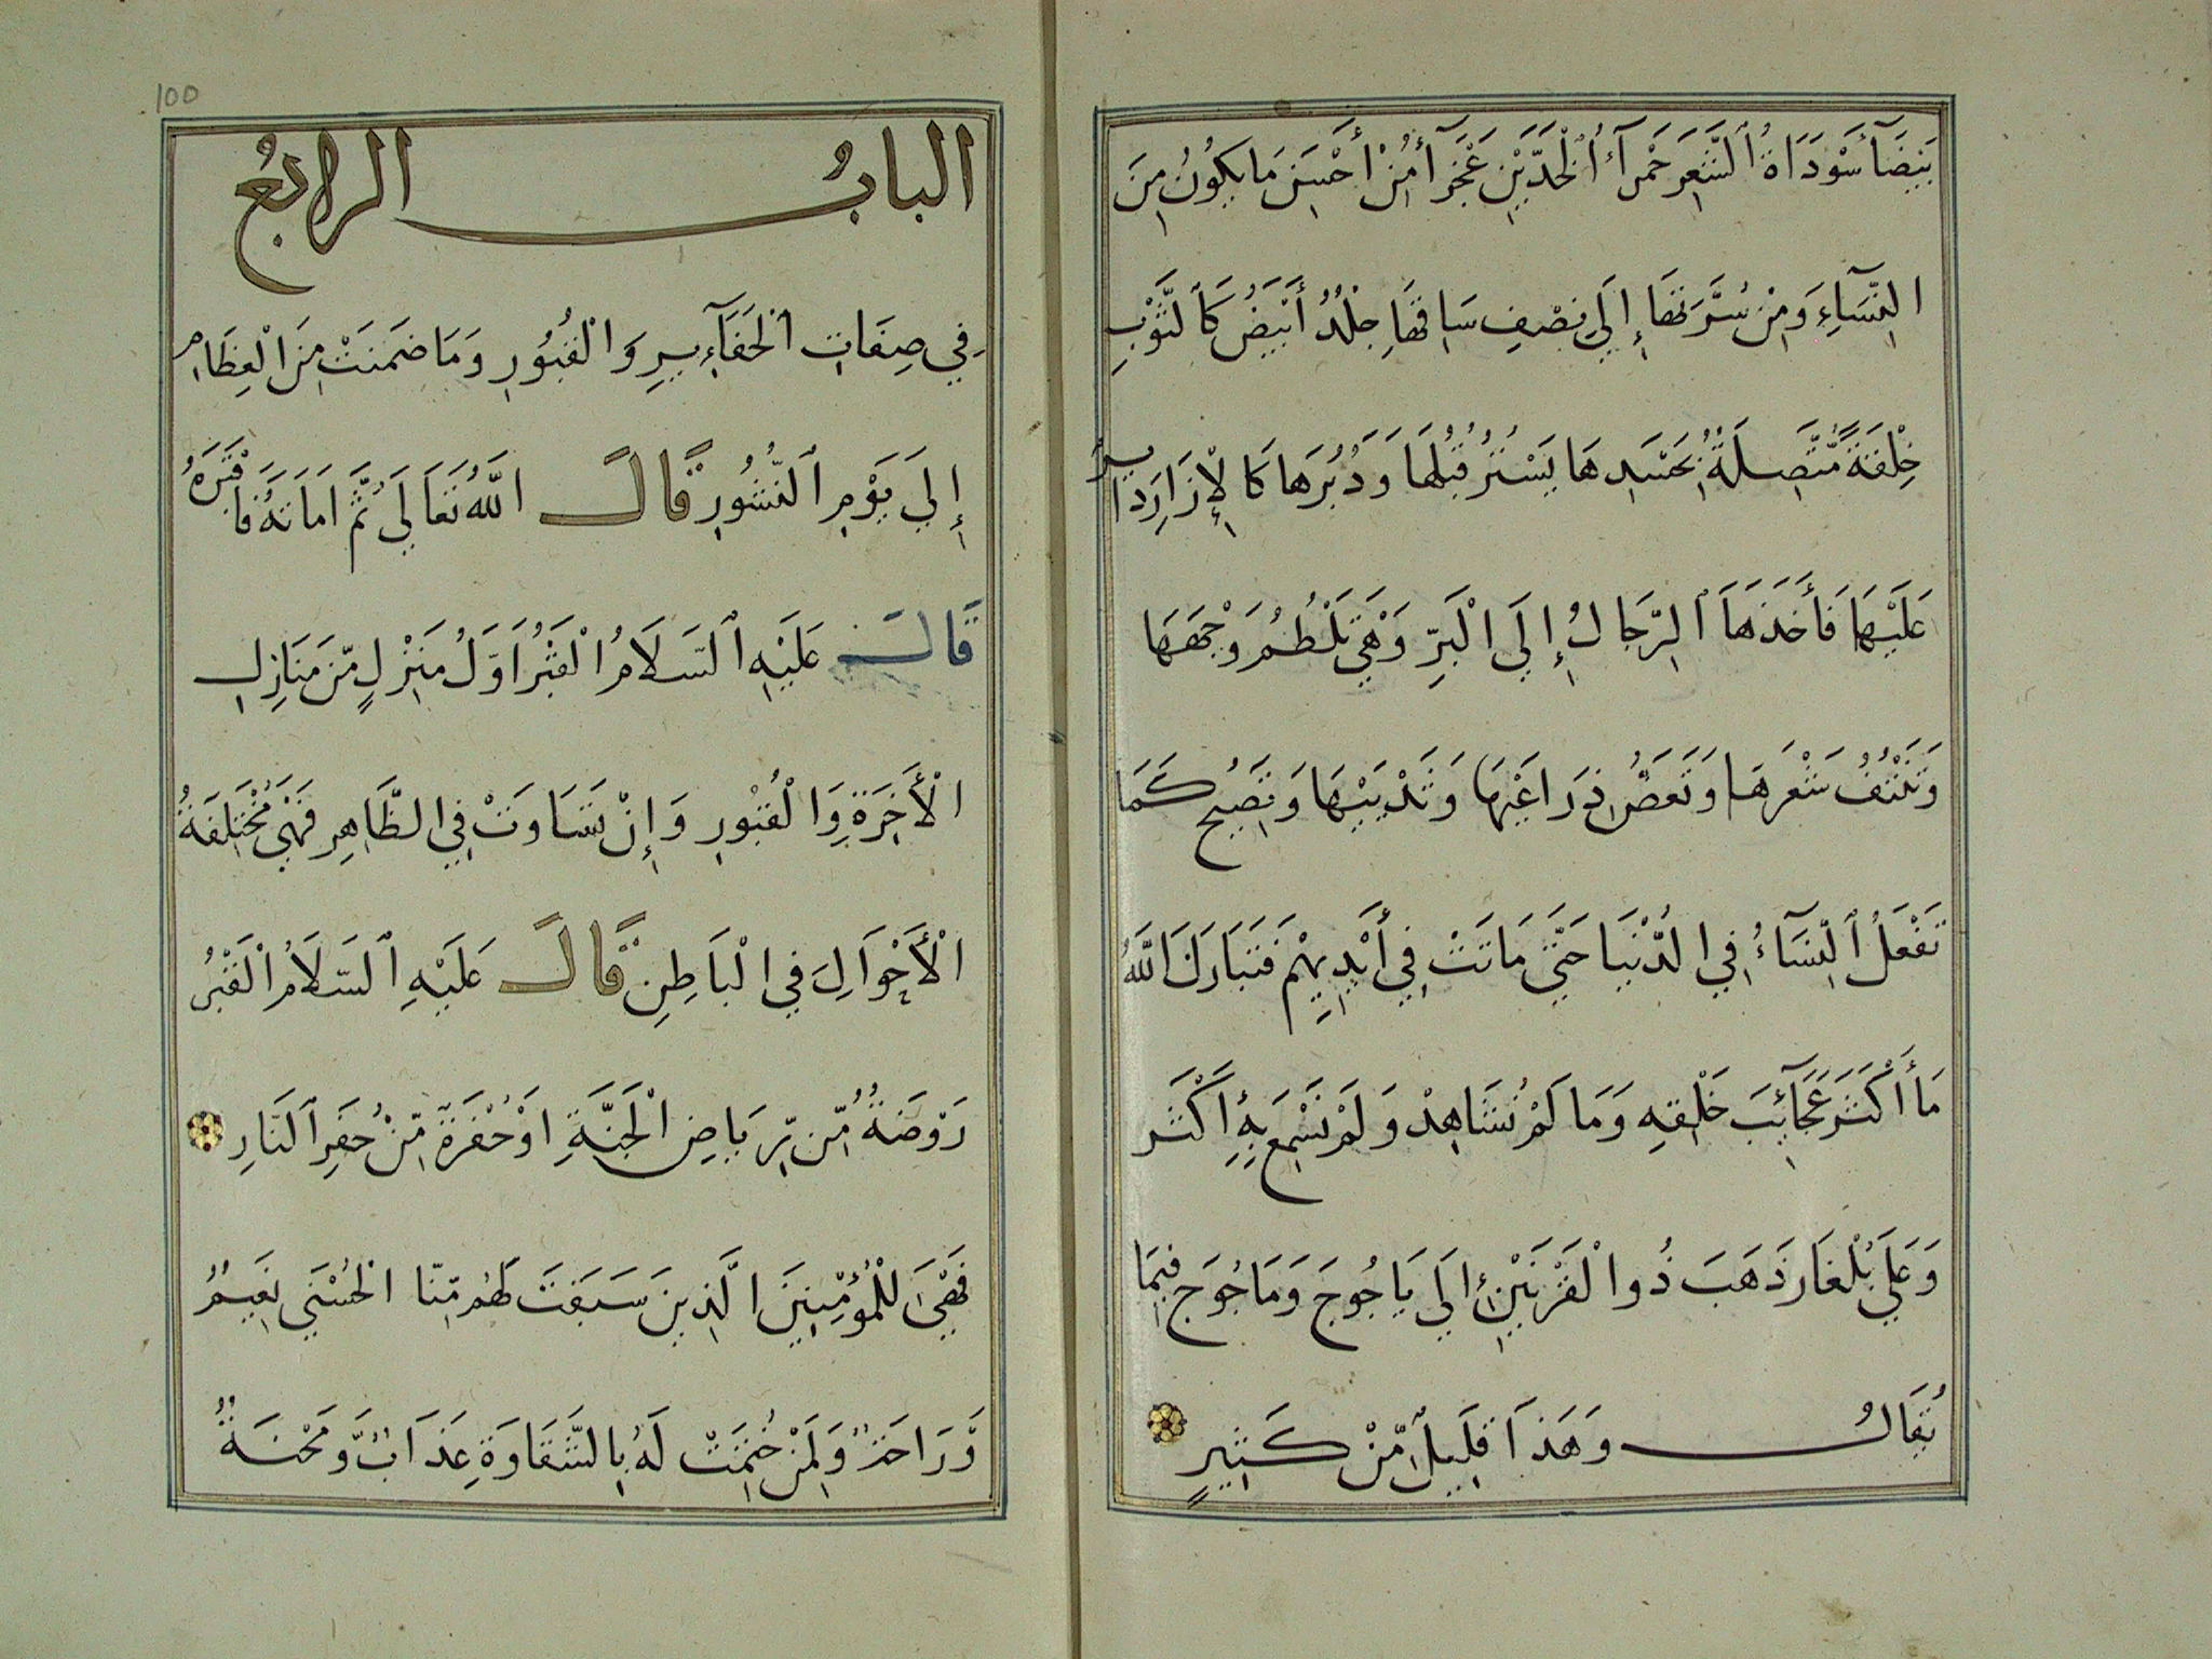 بَيضَآ سَوْدَاةُ ٱلشَّعِرَ حَمْرَآءُ ٱلْخَدَّيْنِ عَجْزَآءُ مِنْ أَحْسَنِ مَا يَكُونُ مِنَ
النِّسَآءِ وَمِنْ سُرَّتِهَا إِلَي نِصْفِ سَاقِهَا جِلْدٌ أَبْيَضُ كَالثَّوْبِ
خِلْقَةً مُّتَّصِلَةٌ بِجَسَدِهَا يَسْتُرُ قُبُلَهَا وَدُبُرَهَا كَالْإِزَارِ دَايِرٌ
عَلَيْهَا فَأَخَذَهَا ٱلرِّجَالُ إِلَي الْبَرِّ وَهْيَ تَلْطُمُ وَجْهَهَا
وَتَنْتُفُ شَعْرَهَا وَتَعَضُّ ذِرَاعَيْهَا وَثَدْيَيْهَا وَتَصِيحُ كَمَا
تَفْعَلُ ٱلنِّسَآءُ فِي الدُّنْيَا حَتَّي مَاتَتْ فِي أَيْدِيهِمْ فَتَبَارَكَ اللَّهُ
مَا أَكْثَرَ عَجَآئِبَ خَلْقِهِ وَمَا لَمْ نُشَاهِدْ وَلَمْ نَسْمَعْ بِهِ أَكْثَر
وَعَلَي بُلْغَار ذَهَبَ ذُوا لْقَرْنَيْنِ إِلَي يَاجُوجَ وَمَاجُوجَ فِيمَا
يُقَالُ وَهَذَا قَلِيلٌ مِّنْ كَثِيرٍ
100
البابُ الرابعُ
فِي صِفَاتِ الْحَفَآئِيرِ وَالْقُبُورِ وَمَا ضَمِنَتْ مِنَ الْعِظَامِ
إِلَي يَوْمِ ٱلنُّشُورِ قَالَ اللَّهُ تَعَالَي ثُمَّ اَمَاتَهُ فَاَقْبَرَهُ
قَالَ عَلَيْهِ ٱلسَلَامُ الْقَبْرُ اَوَّلُ مَنْزِلٍ مِّنْ مَنَازِلِ
الْأَخِرَةِ وَالْقُبُورِ وَإِنْ تَسَاوَتْ فِي الظَّاهِرِ فَهْيَ مُخْتَلِفَةُ
الْأَحْوَالِ فِي الْبَاطِنِ قَالَ عَلَيْهِ ٱلسَلَامُ الْقَبْرُ
رَوْضَةٌ مِّن رِّيَاضِ الْجَنَّةِ اَوْ حُفْرَةٌ مِّنْ حُفَرِ ٱلنَّارِ
فَهْيَ لِلْمُؤْمِنِينَ الَّذِينَ سَبَقَتْ لَهُم مِّنَّا الْحُسْنَي نَعِيمٌ
وَّرَاحَةٌ وَلِمَنْ خُتِمَتْ لَهُ بِالشَّقَاوَةِ عَذَابٌ وَّمَحْنَةٌ